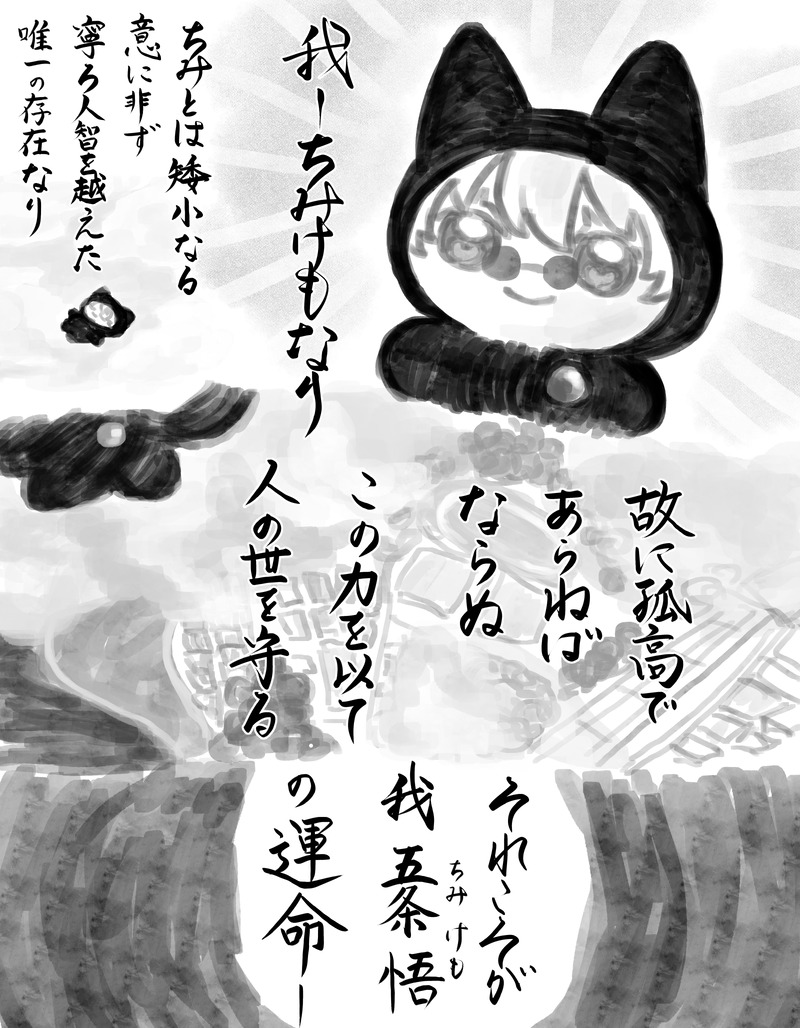 我ーちみけもなり
ちみとは矮小なる
意に非ず
寧ろ人智を越えた
唯一の存在なり
故に孤高で
あらねば
ならぬ
この力を以て
人の世を守る
それこそが
我五条悟
ちみけも
の運命ー